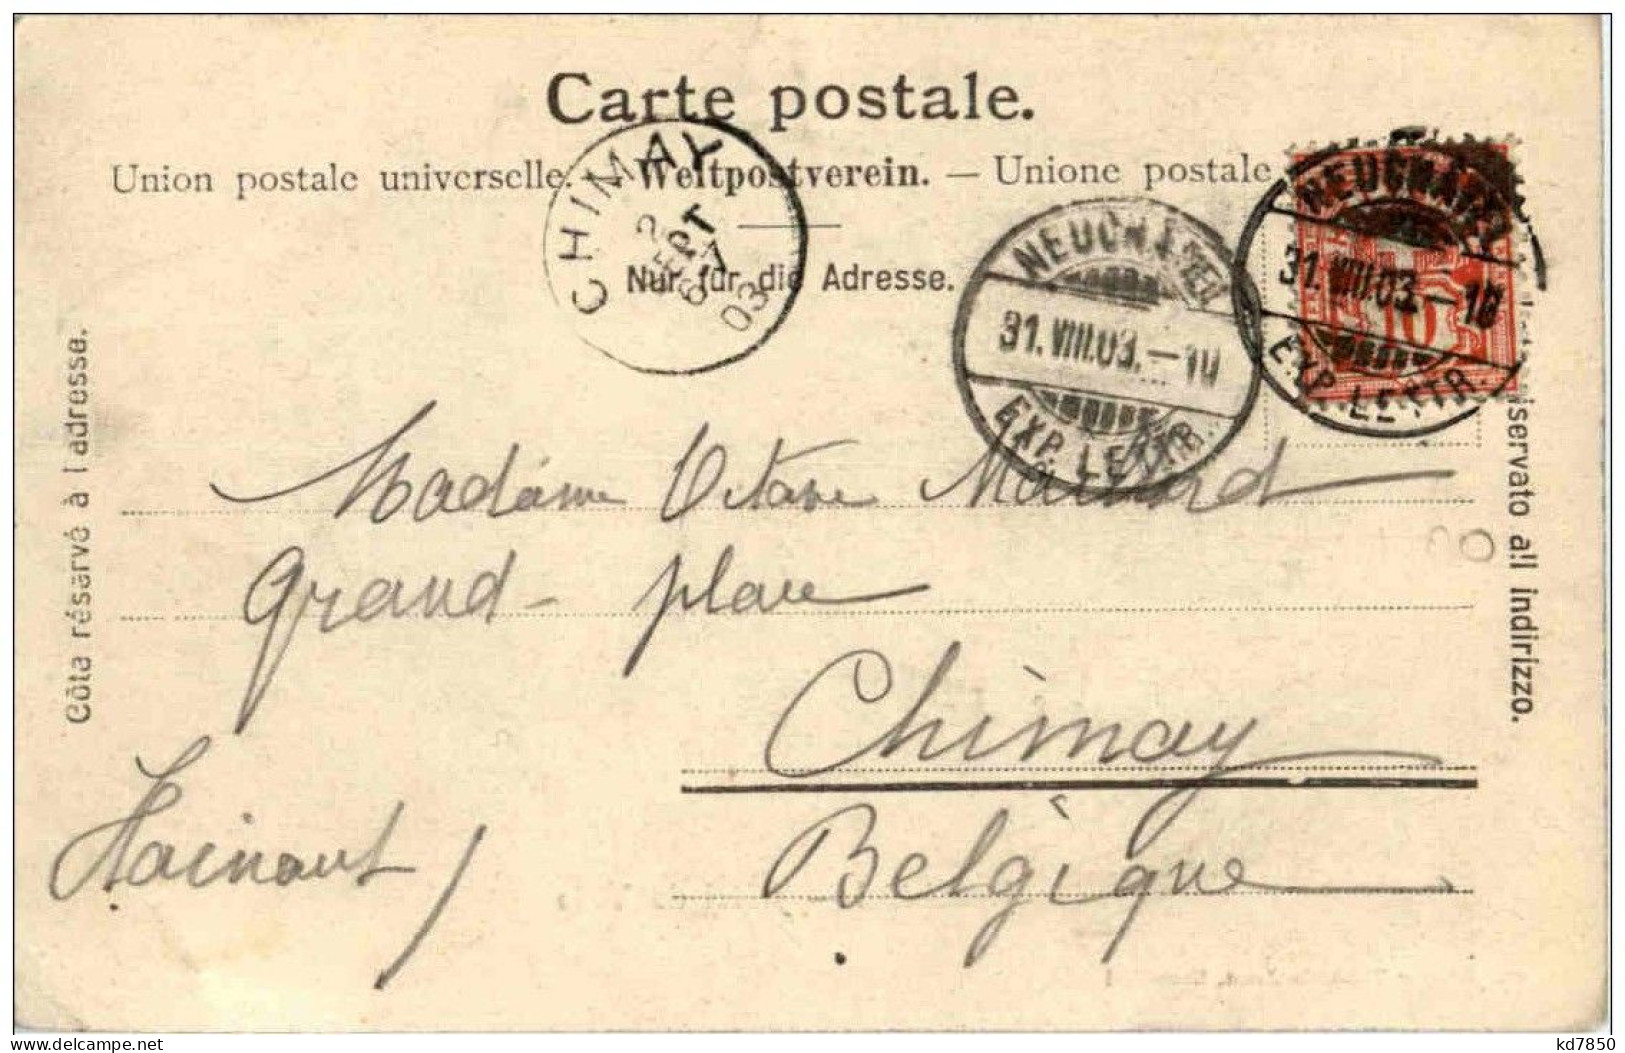 Carte postale.
Union postale universelle. — Weltpostverein. — Unione postale
Nur für die Adresse.
CHIMAY
2
SEPT
6-7
03
NEUCHÂTEL
31.VIII.03.–10
EXP. LETTR.
NEUCHÂTEL
31.VIII.03.–10
EXP. LETTR.
10
Côté réservé à l'adresse.
riservato all indirizzo.
Madame Octave
Grand-place
Chimay
Hainaut /
Belgique
delcampe.net
kd7850